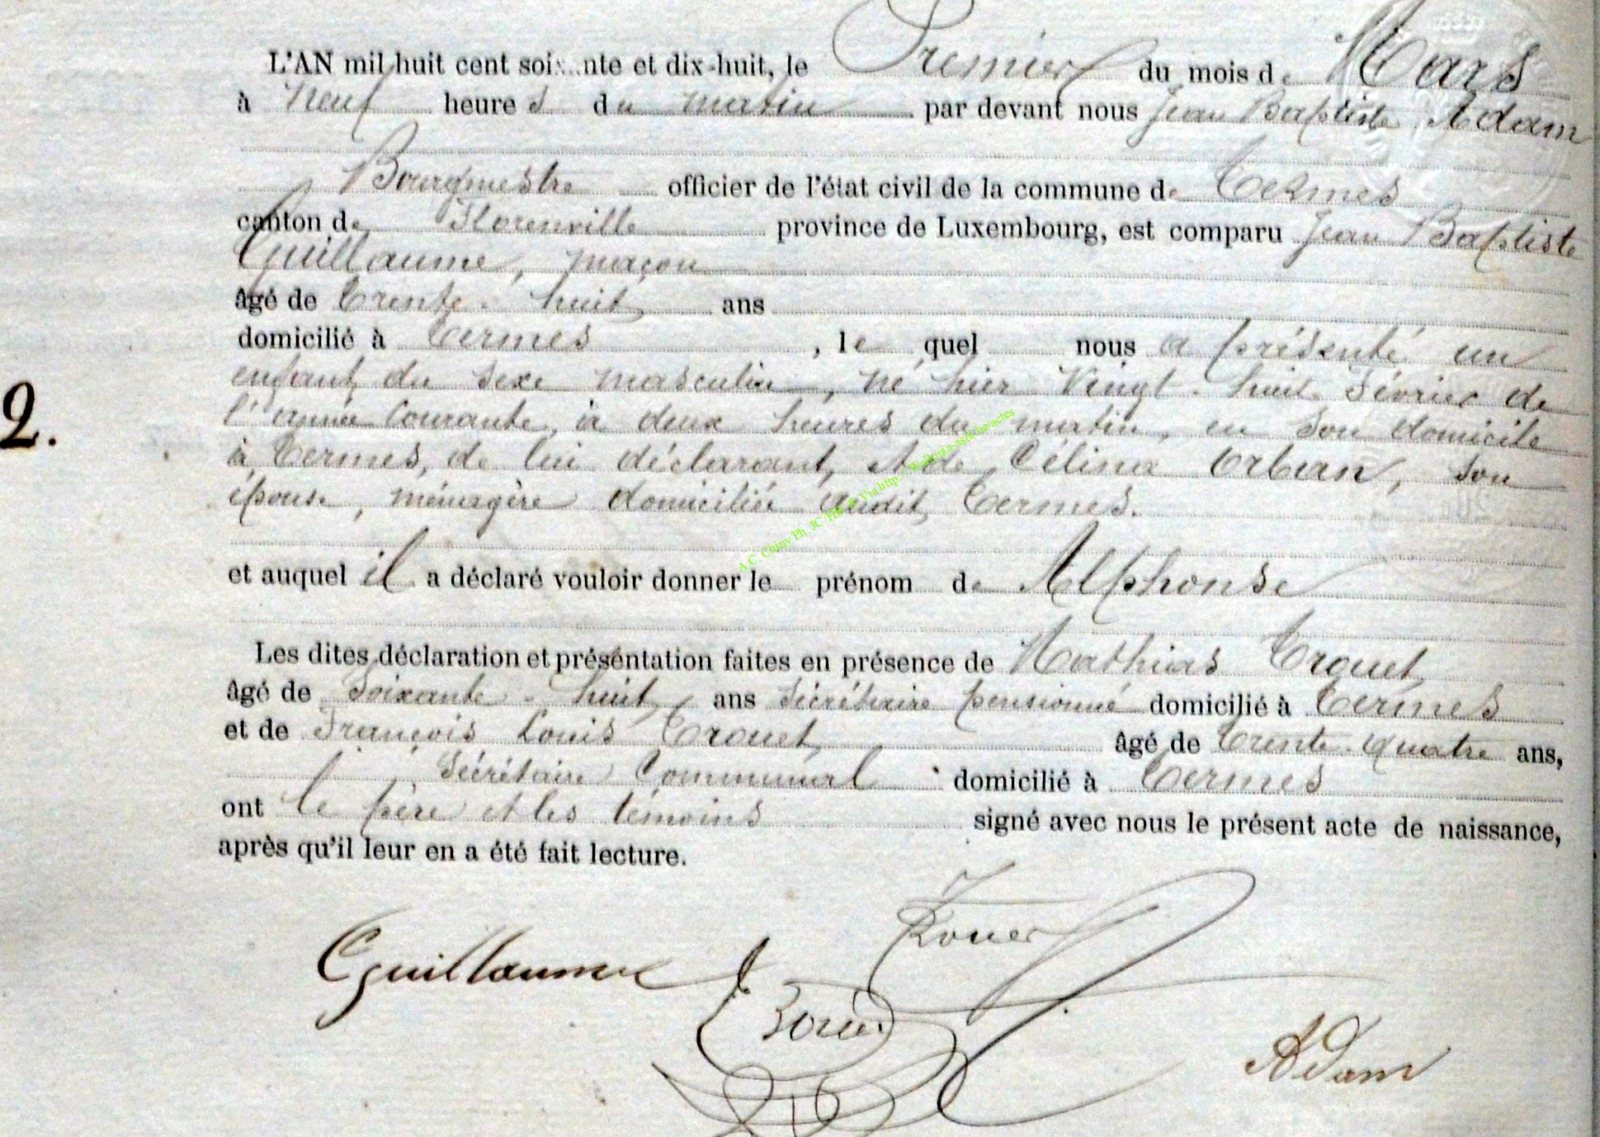 L'AN mil huit cent soixante et dix-huit, le Premier du mois de Mars
à neuf heures du matin par devant nous Jean Baptiste Adam
Bourgmestre officier de l'état civil de la commune de Termes
canton de Florenville province de Luxembourg, est comparu Jean Baptiste
Guillaume, maçon
âgé de trente-huit ans
domicilié à Termes, lequel nous a présenté un
enfant du sexe masculin, né hier vingt-huit Février de
l'année courante, à deux heures du matin, en son domicile
2.
à Termes, de lui déclarant, et de Célina Orban, son
épouse, ménagère domiciliée audit Termes.
et auquel il a déclaré vouloir donner le prénom de Alphonse
Les dites déclaration et présentation faites en présence de Mathias
âgé de soixante-huit ans secrétaire pensionné domicilié à Termes
et de François Louis âgé de trente-quatre ans,
Secrétaire Communal domicilié à Termes
ont le père et les témoins signé avec nous le présent acte de naissance,
après qu'il leur en a été fait lecture.
Guillaume
Adam